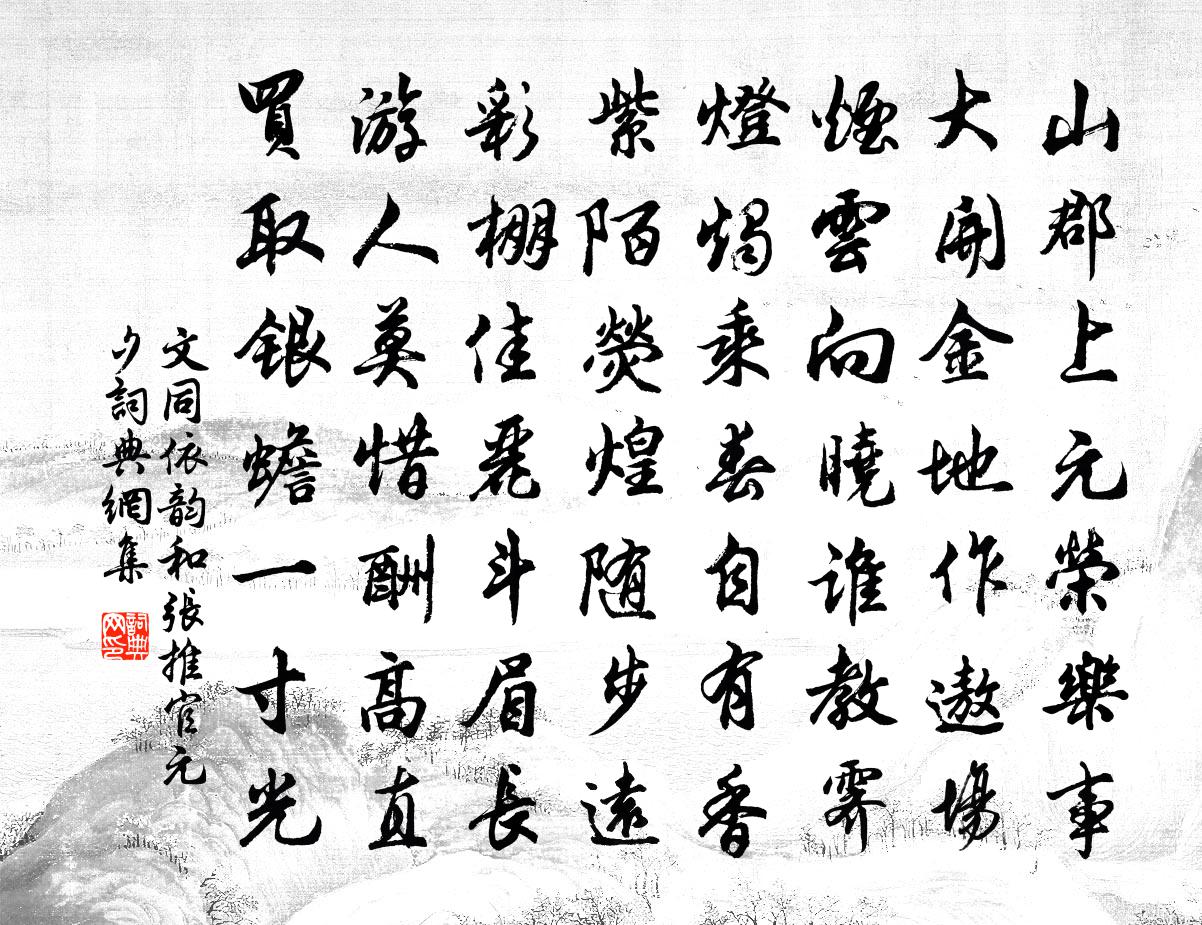 山郡上元榮樂事
大開金地作遨場
煙雲向曉誰教霽
燈燭乘春自有香
紫陌熒煌随步遠
彩棚佳麗斗眉長
游人莫惜酬高直
買取銀蟾一寸光
文同依韵和張推官元
夕詞典網集
詞典网印